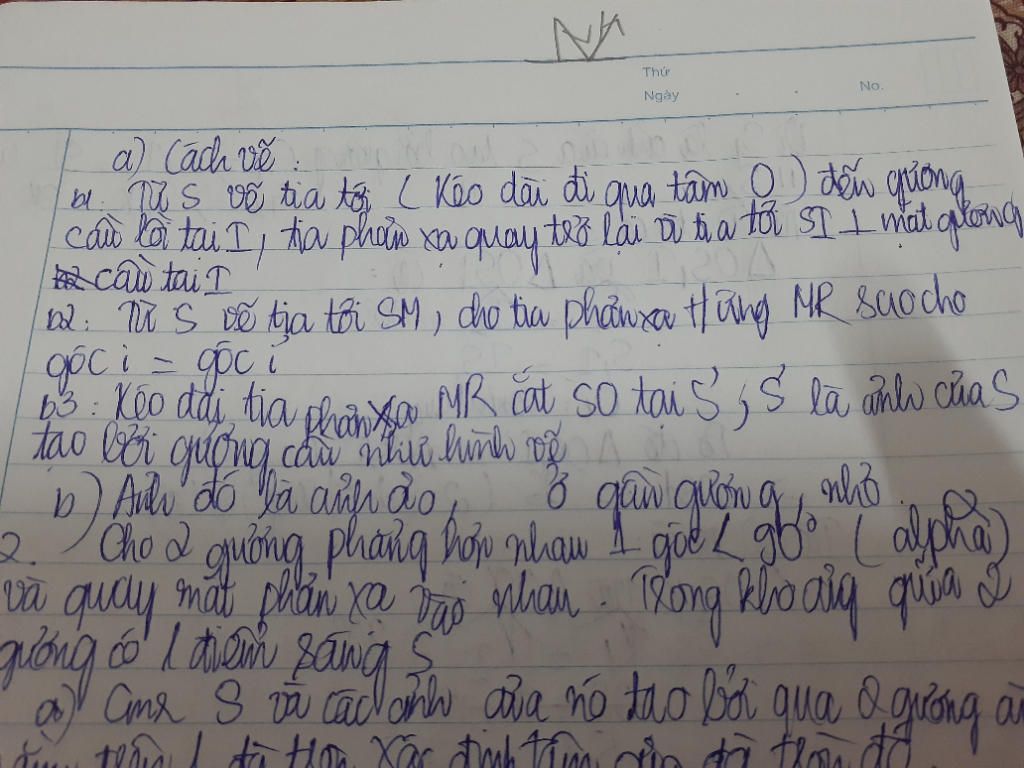 Thứ
Ngày . . No.
a) Cách vẽ:
b1: Từ S vẽ tia tới (kéo dài đi qua tâm O) đến gương
cầu lồi tại I, tia phản xạ quay trở lại vì tia tới SI ⊥ mặt gương
cầu tại I
b2: Từ S vẽ tia tới SM, cho tia phản xạ MR sao cho
góc i = góc i'
b3: Kéo dài tia phản xạ MR cắt SO tại S', S' là ảnh của S
tạo bởi gương cầu như hình vẽ
b) Ảnh đó là ảnh ảo, ở gần gương, nhỏ
2. Cho 2 gương phẳng hợp nhau 1 góc < 90° (alpha)
và quay mặt phản xạ vào nhau. Trong khoảng giữa 2
gương có 1 điểm sáng S
a) Cmr S và các ảnh của nó tạo bởi qua 2 gương
trên 1 đg tròn xác định tâm của đg tròn đó